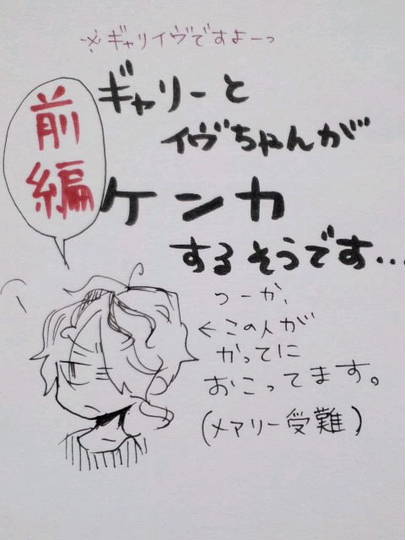 ※ギャリイヴですよーっ
前編
ギャリーと
イヴちゃんが
ケンカ
するそうです…
つーか、
←この人が
かってに
おこってます。
(メアリー受難)